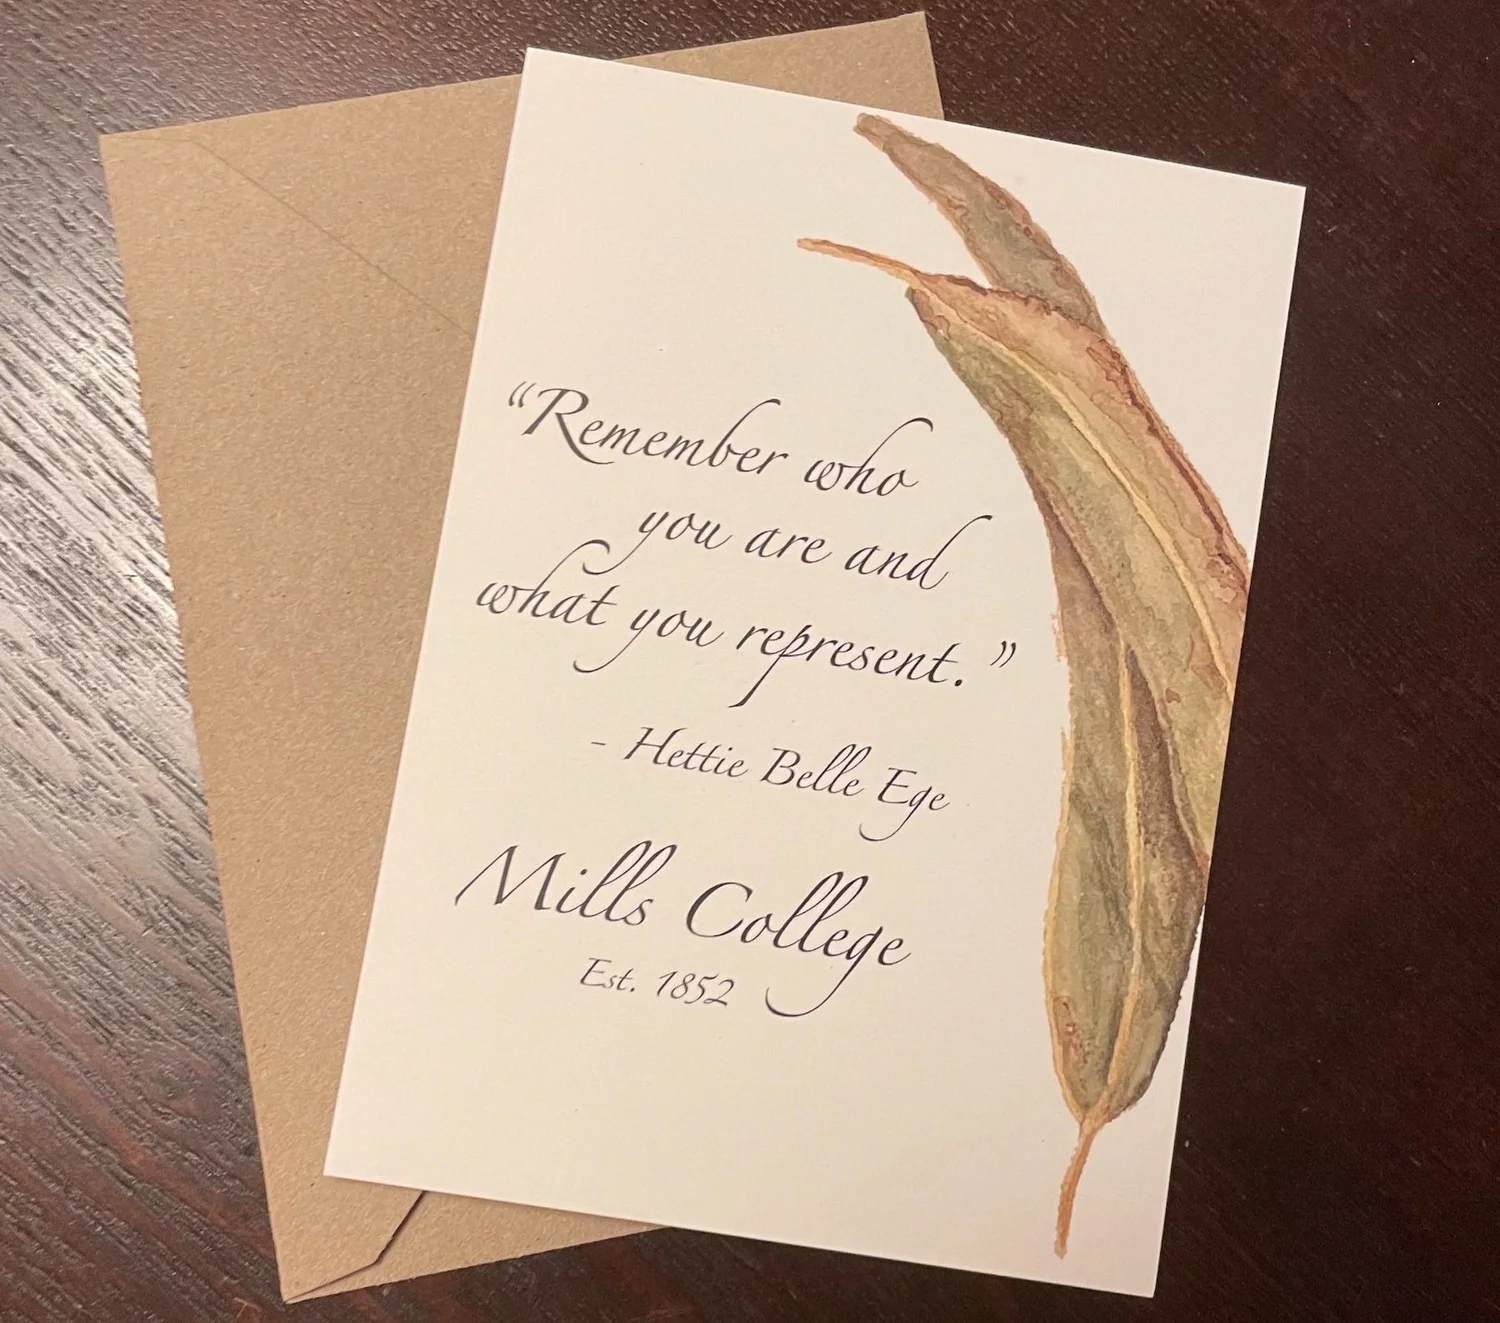 “Remember who
you are and
what you represent.”
- Hettie Belle Ege
Mills College
Est. 1852